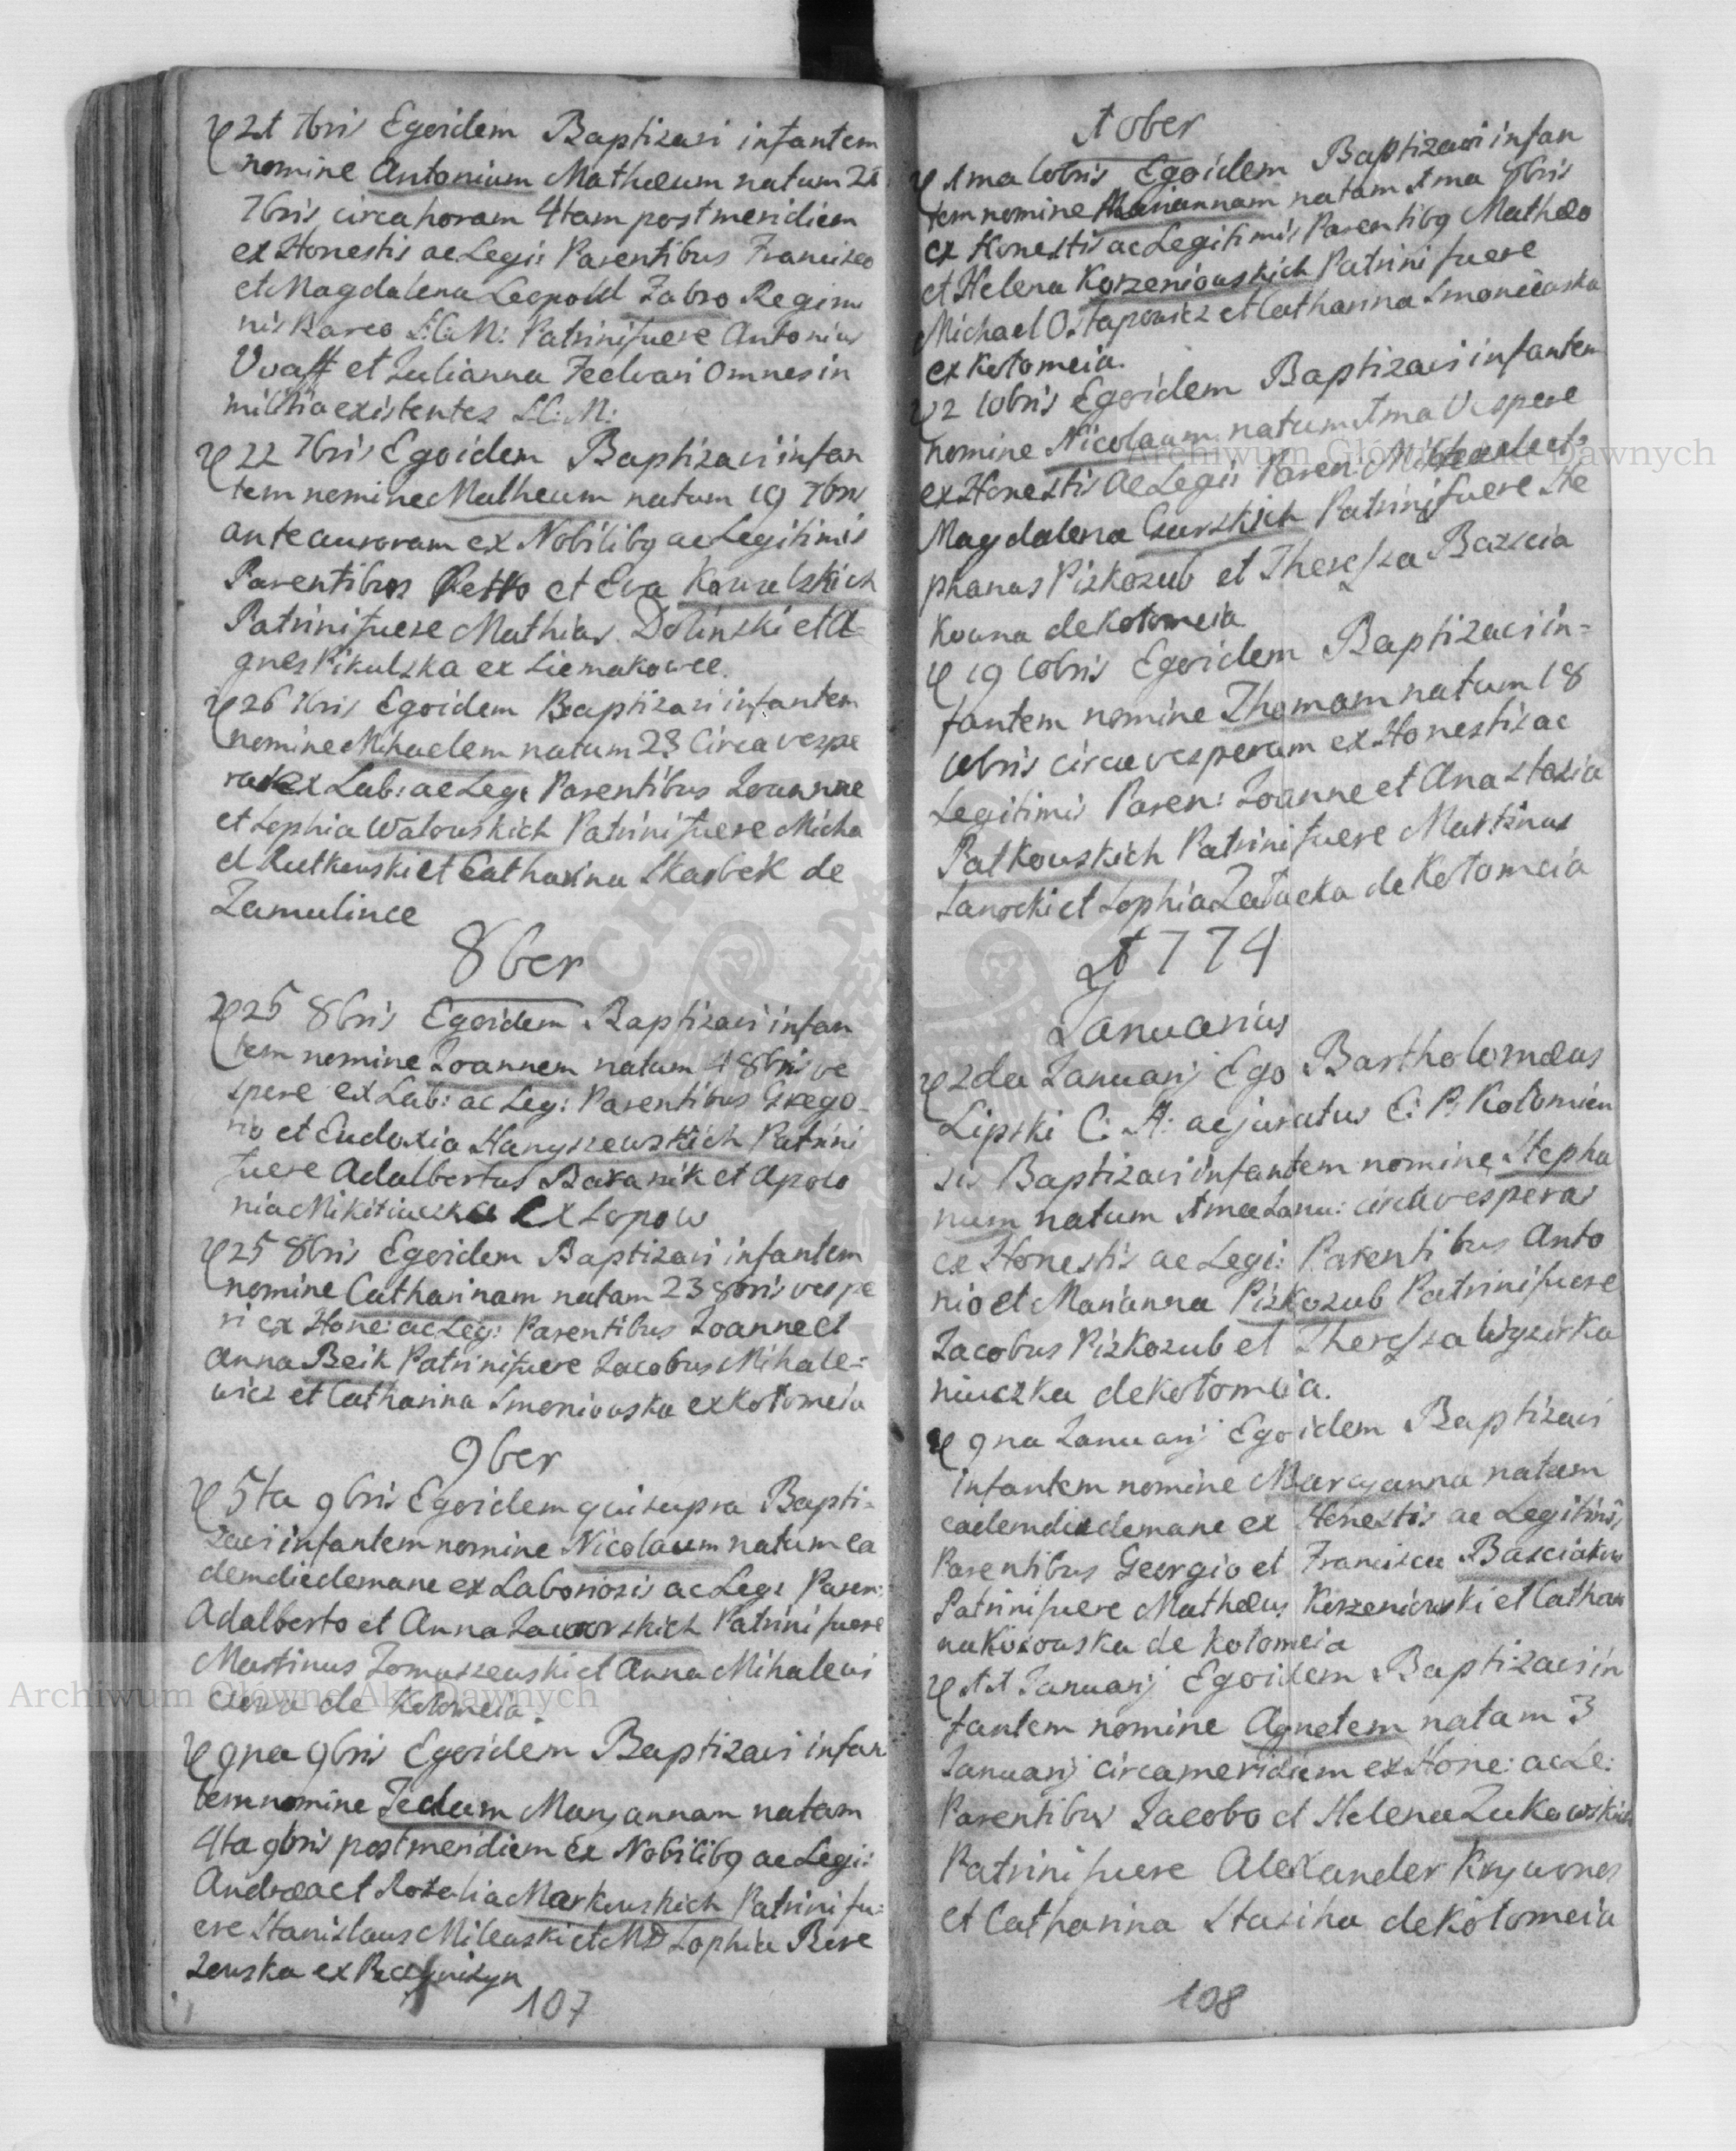 21 7bris Egoidem Baptizavi infantem
nomine Antonium Mathæum natum 21
7bris circa horam 4tam post meridiem
ex Honestis ac Legi: Parentibus Francisco
et Magdalena Leopold Fabro Regimi
nis Barco S:C:M: Patrini fuere Antonius
et Julianna Fedvari omnes in
militia existentes S:C:M:
22 7bris Egoidem Baptizavi infan
tem nomine Matheum natum 19 7bris
ante auroram ex Nobilibq ac Legitimis
Parentibus Petro et Eva Kowalskich
Patrini fuere Mathias Dolinski et A=
gnes Pikulska ex Siemakowce.
26 7bris Egoidem Baptizavi infantem
nomine Mihaelem natum 23 Circa vespe
ras ex Lab: ac Leg: Parentibus Joannne
et Sophia Watowskich Patrini fuere Micha
el Rutkowski et Catharina Skarbek de
Zamulince
8ber
25 8bris Egoidem Baptizavi infan
tem nomine Joannem natum 4 8bris ve
spere ex Lab: ac Leg: Parentibus Grego
rio et Eudoxia Hanyszewskich Patrini
fuere Adalbertus Baranik et Apolo
nia ex Sopow
25 8bris Egoidem Baptizavi infantem
nomine Catharinam natam 23 8bris vespe
ri ex Hone: ac Leg: Parentibus Joanne et
Anna Beik Patrini fuere Jacobus Mihale=
wicz et Catharina Smoniowska ex Kołomeia
9ber
5ta 9bris Egoidem qui supra Bapti=
zavi infantem nomine Nicolaum natum ea
dem die de mane ex Laboriosis ac Leg: Paren:
Adalberto et Anna Jaworskich Patrini fuere
Martinus Tomaszewski et Anna Mihalewi
czowa de Kolomeia.
9na 9bris Egoidem Baptizavi infan
tem nomine Teclam Maryannam natam
4ta 9bris post meridiem ex Nobilibq ac Legi:
Andræa et Rozalia Markowskich Patrini fu=
ere Stanislaus Milewski et MD Sophia Bere
zowska ex Peczynizyn
107
10ber
1ma 10bris Egoidem Baptizavi infan
tem nomine Mariannam natam 1ma 10bris
ex Honestis ac Legitimis Parentibq Mathæo
et Helena Korzeniowskich Patrini fuere
Michael Ostapowicz et Catharina Smoniowska
ex Kołomeia.
2 10bris Egoidem Baptizavi infantem
nomine Nicolaum natum 1ma Vespere
ex Honestis ac Legi: Paren: Michaele et
Magdalena Gurskich Patrini fuere Ste
phanus Pizkozub et Theressa Bazscia
kowna de Kołomeia
19 10bris Egoidem Baptizavi in=
fantem nomine Thomam natum 18
10bris circa vesperam ex Honestis ac
Legitimis Paren: Joanne et Anastasia
Patkowskich Patrini fuere Martinus
Sanocki et Sophia Załucka de Kołomeia
1774
Januarius
2da Januarij Ego Bartholomæus
Lipski C: A: ac juratus E: P: Kołomien
sis Baptizavi infantem nomine Stepha
num natum 1ma Janu: circa vesperas
ex Honestis ac Legi: Parentibus Anto
nio et Marianna Pizkozub Patrini fuere
Jacobus Pizkozub et Theressa
niuczka de Kołomeia.
9na Januarij Egoidem Baptizavi
infantem nomine Maryanna natam
eadem die de mane ex Honestis ac Legitimis
Parentibus Georgio et Francisca Basciakow
Patrini fuere Mathæus Korzeniowski et Cathari
na Kozowska de Kołomeia
11 Januarij Egoidem Baptizavi in
fantem nomine Agnetem natam 3
Januarij circa meridiem ex Hone: ac Le:
Parentibus Jacobo et Helena Zukowskich
Patrini fuere Alexander Krywonos
et Catharina Stasiha de Kołomeia
108
Archiwum Główne Akt Dawnych
Archiwum Główne Akt Dawnych